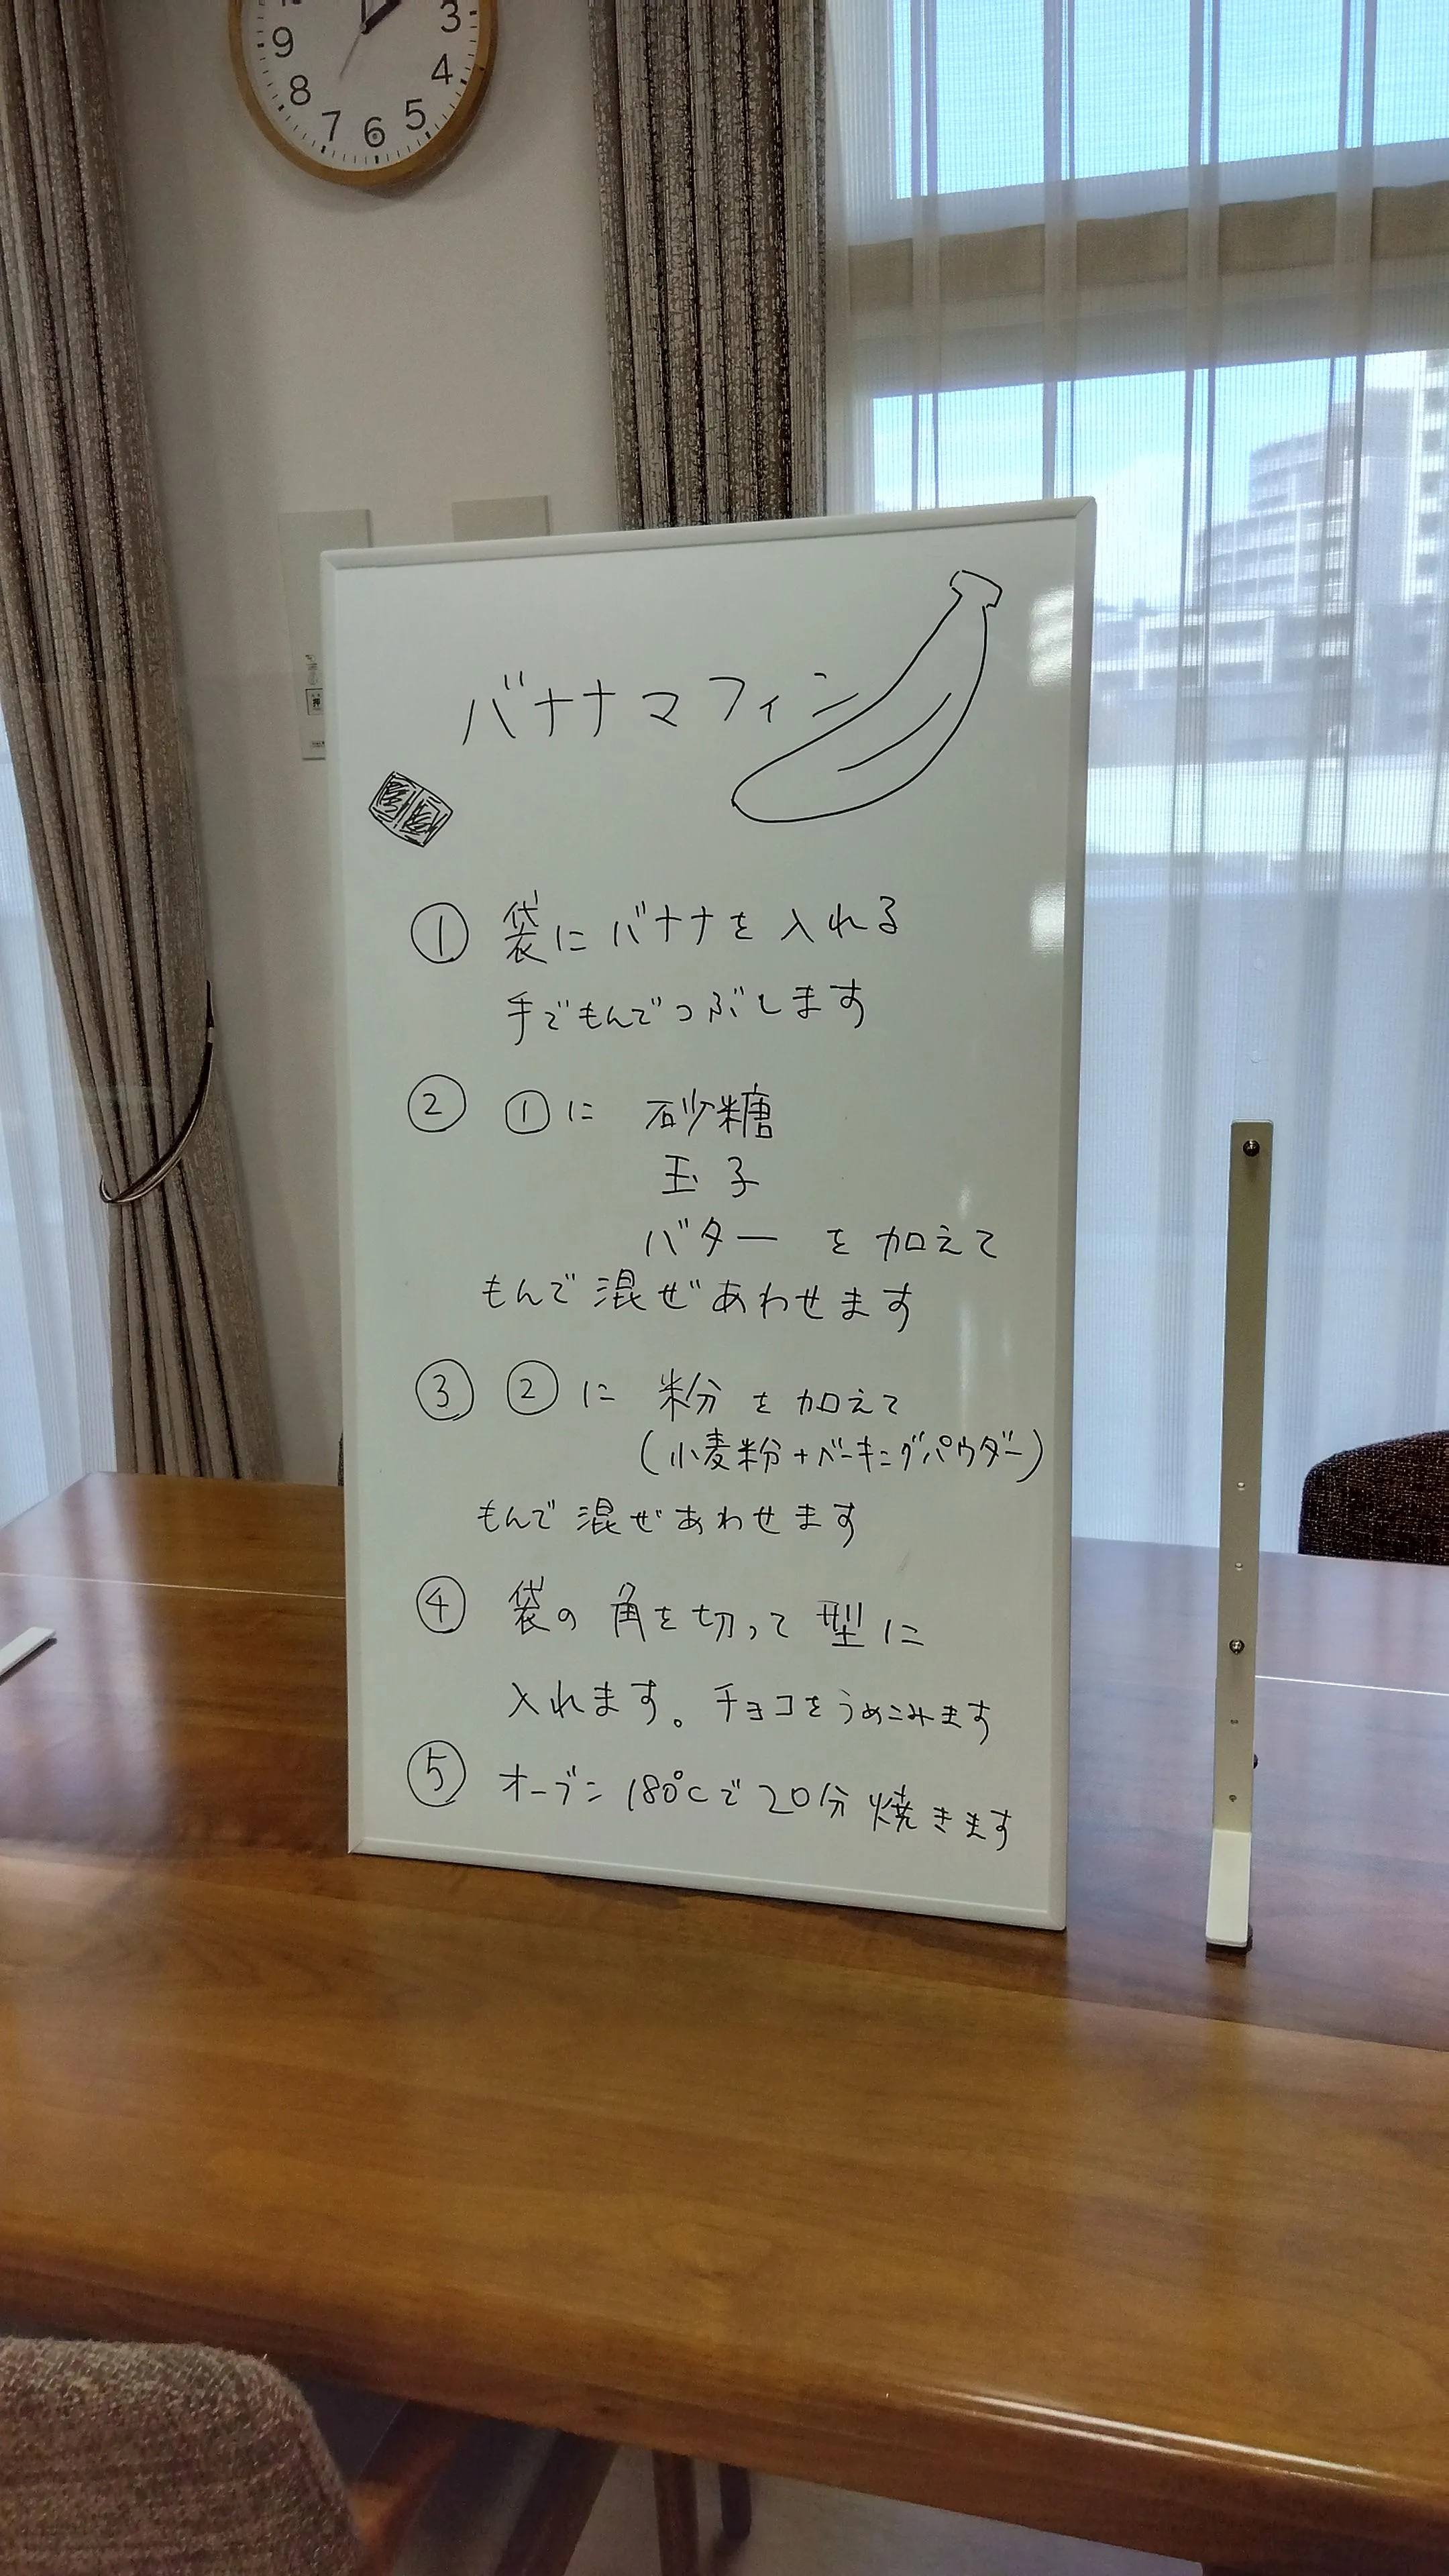 9
8
7
6
5
4
3
押
バナナマフィン
① 袋にバナナを入れる
手でもんでつぶします
② ①に 砂糖
玉子
バター を加えて
もんで混ぜあわせます
③ ②に 粉を加えて
(小麦粉+ベーキングパウダー)
もんで混ぜあわせます
④ 袋の角を切って型に
入れます。チョコをうめこみます
⑤ オーブン180℃で20分焼きます